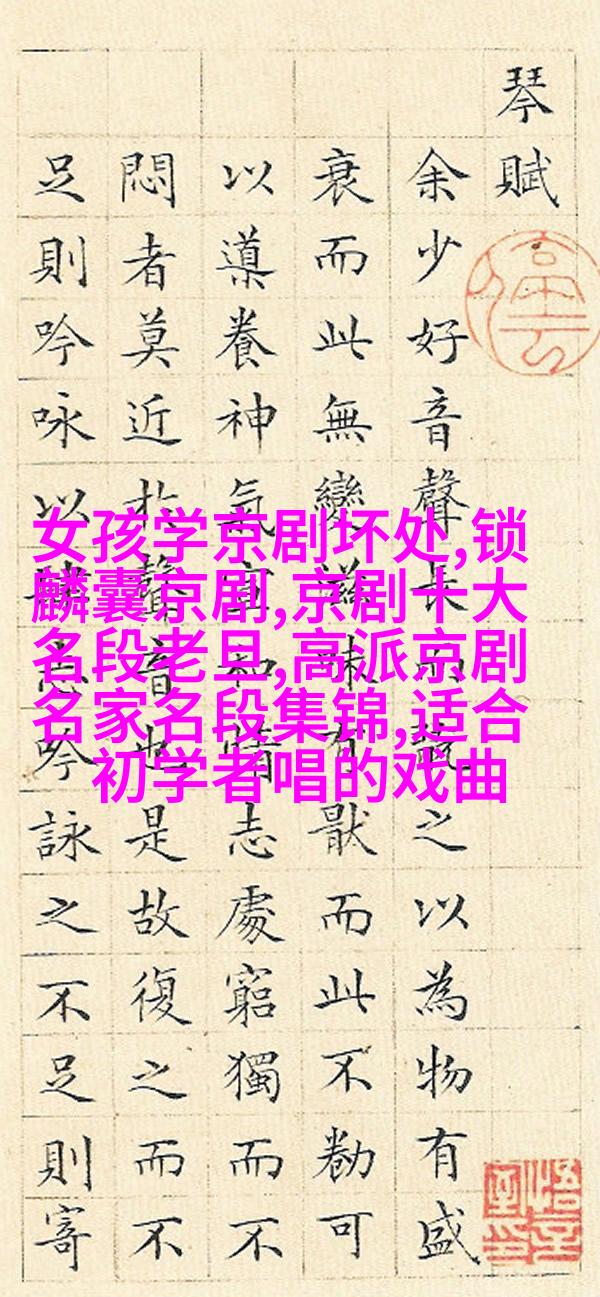 琴賦
余少好音聲長而翫之以為物有盛
衰而此無變滋味有猒而此不勌可
以導養神氣宣和情志處窮獨而不
悶者莫近於聲音也是故復之而不
足則吟咏以志吟詠之不足則寄
女孩学京剧坏处,锁
麟囊京剧,京剧十大
名段老旦,高派京剧
名家名段集锦,适合
初学者唱的戏曲